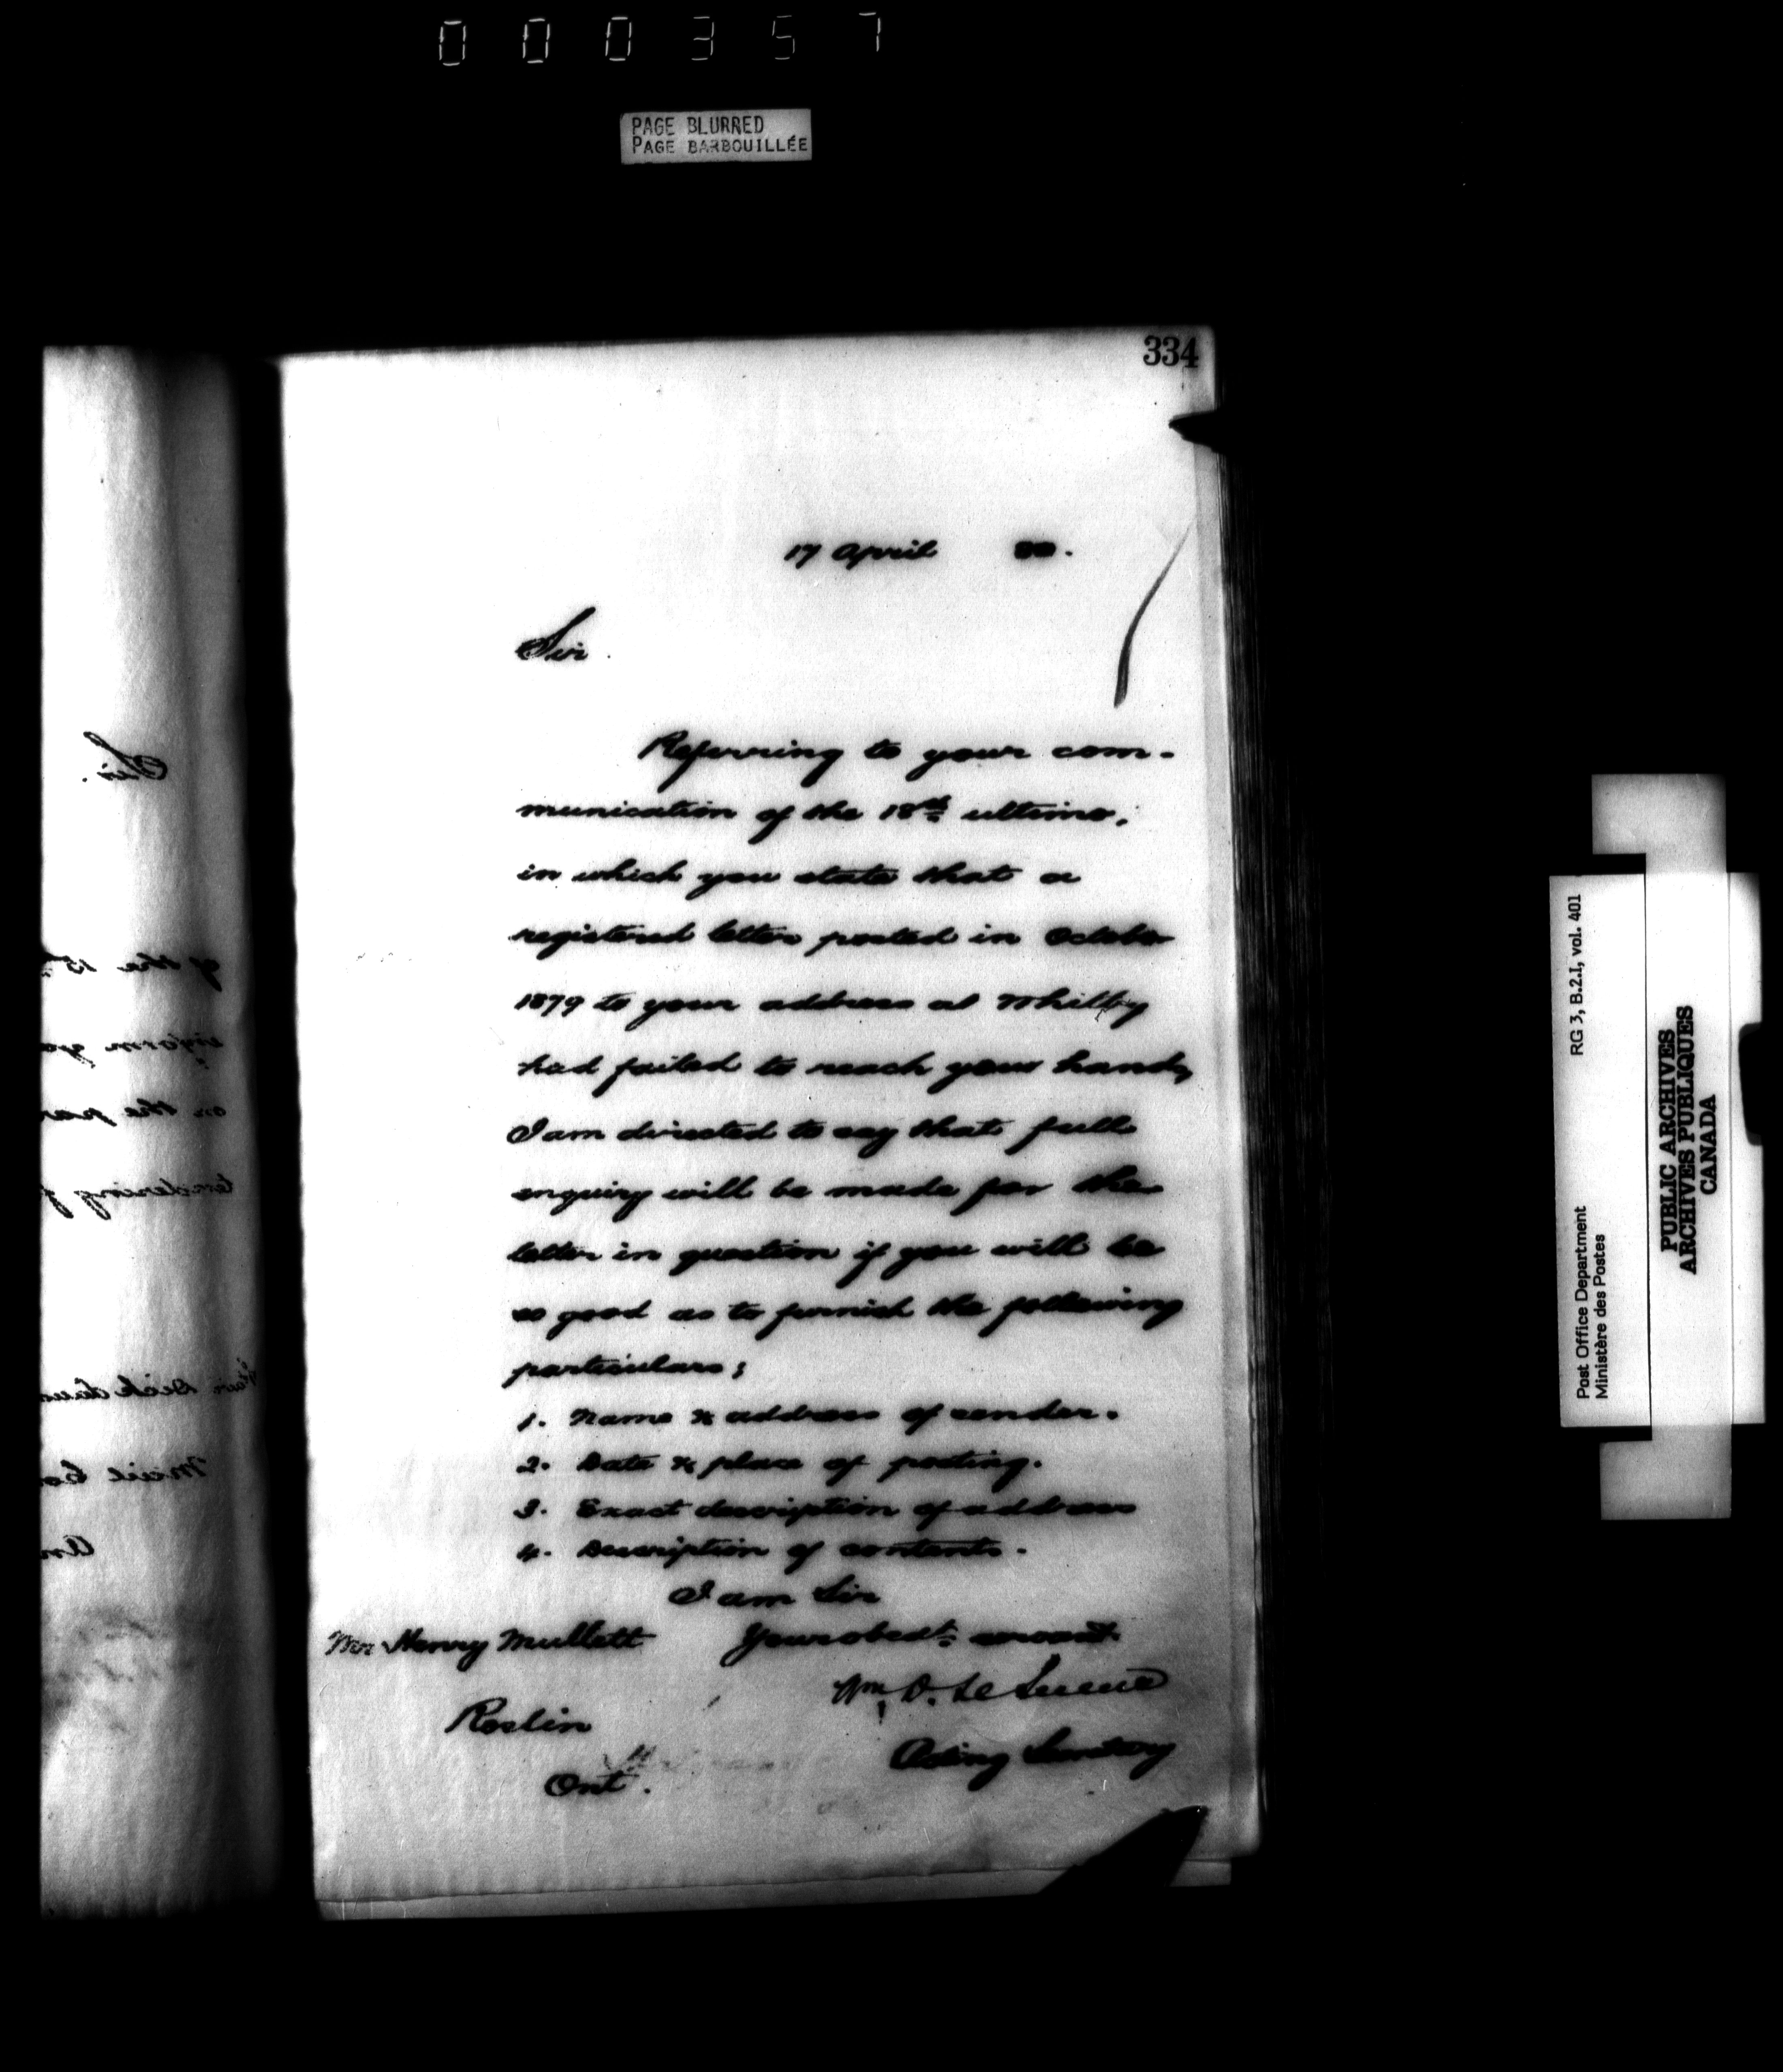 000357
PAGE BLURRED
PAGE BARBOUILLÉE
334
17 April 80.
Sir.
Referring to your com-
munication of the 18th ultimo,
in which you state that a
registered letter posted in October
1879 to your address at Whitby
had failed to reach your hands,
I am directed to say that full
enquiry will be made for the
letter in question if you will be
so good as to furnish the following
particulars;
1. Name & address of sender.
2. Date & place of posting.
3. Exact description of address
4. Description of contents.
I am Sir
Your obedt. servant.
Wm. D. Le Sueur
Acting Secretary
Mr Henry Mullett
Roslin
Ont.
Sir.
of the 15
inform yo
on the par
tendering f
Mail Co
An
Post Office Department
Ministère des Postes
RG 3, B.2.I, vol. 401
PUBLIC ARCHIVES
ARCHIVES PUBLIQUES
CANADA